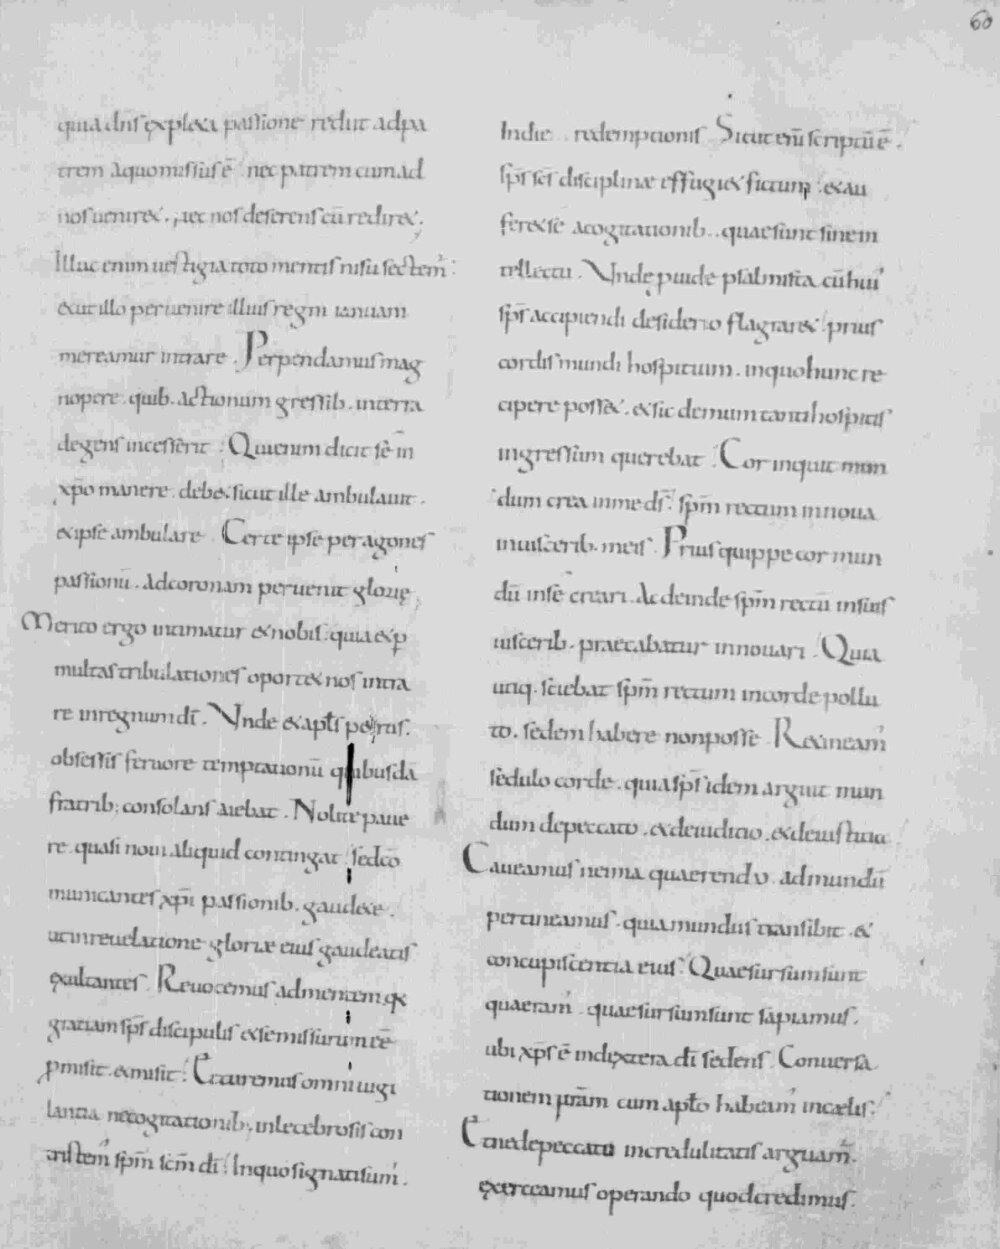 60
quia dn̄s expleta passione redut ad pa
trem a quo missus ē. nec patrem cum ad
nos ueniret. nec nos deserens cū rediret;
Illuc enim uestigia toto mentis nisu sectem̄
& ut illo peruenire illius regni ianuam
mereamur intrare. Perpendamus mag
nopere. quib. actionum gressib. in terra
degens incesserit. Qui enim dicit se in
xp̄o manere. debet sicut ille ambulauit.
& ipse ambulare. Certe ipse per agones
passionū. ad coronam peruenit glorię.
Merito ergo intimatur & nobis. quia & p̄
multas tribulationes oportet nos intra
re in regnum dī. Vnde & apl̄s petrus.
obsessis feruore temptationū quibusdā
fratrib; consolans aiebat. Nolite paue
re. quasi noui aliquid contingat. sed cō
municantes xp̄i passionib. gaudete.
ut in reuelatione gloriæ eius gaudeatis
exultantes. Reuocemus ad mentem qđ
gratiam sp̄s discipulis & se missurum cē
pmisit. & misit. Et curemus omni uigi
lantia ne cogitationib; inlecebrosis con
tristem̄ sp̄m sc̄m dī. In quo signati sum̄.
In die redemptionis. Sicut enī scriptū ē.
sp̄s sc̄s disciplinæ effugiet fictum. & au
feret se a cogitationib. quae sunt sine in
tellectu. Vnde puide psalmista cū hui
sp̄s accipiendi desiderio flagraret. prius
cordis mundi hospitium. in quo hunc re
cipere posset. & sic demum tanti hospitis
ingressum querebat. Cor inquit mun
dum crea in me dš. sp̄m rectum innoua
in uiscerib. meis. Prius quippe cor mun
dū in se creari. Ac deinde sp̄m rectū in suis
uiscerib. praecabatur innouari. Quia
utiq. sciebat sp̄m rectum in corde pollu
to. sedem habere non posse. Retineam̄
sedulo corde. quia sp̄s idem arguit mun
dum de peccato. & de iudicio. & de iustitia
Caueamus ne ima quaerendo. ad mundū
pertineamus. quia mundus transibit. &
concupiscentia eius. Quae sursum sunt
quaeram̄. quae sursum sunt sapiamus.
ubi xp̄s ē in dextera dī sedens. Conuersa
tionem nr̄am cum apl̄o habeam̄ in cælis.
Et ne de peccatu incredulitatis arguam̄.
exerceamus operando quod credimus.